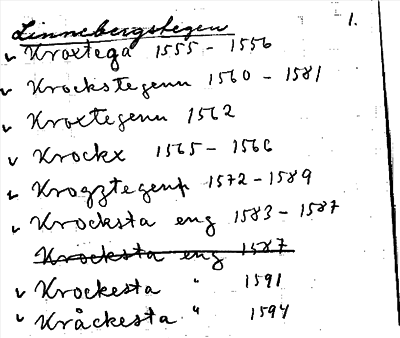 Linnebergstegen 1.
v Kroxtega 1555 - 1556
v Krockstegenn 1560 - 1581
v Kroxtegenn 1562
v Krockx 1565 - 1566
v 1572 - 1589
v Krocksta eng 1583 - 1587
Krocksta eng 1587
v Krockesta " 1591
v Kråckesta " 1594